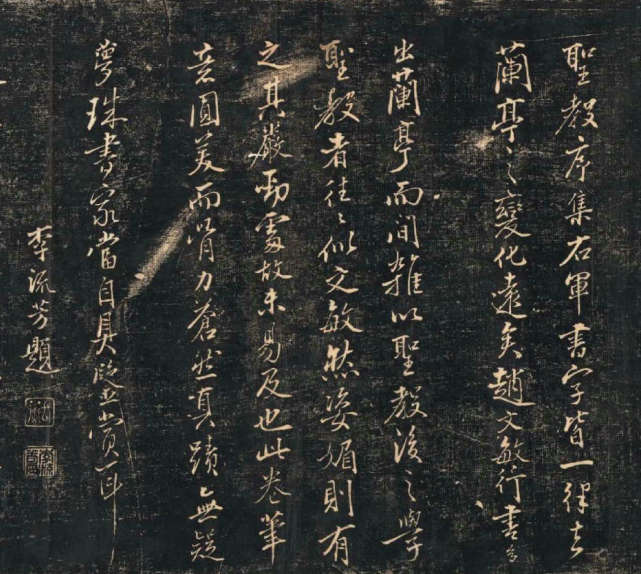 聖教序集右軍書字皆一律去
蘭亭之變化遠矣趙文敏行書多
出蘭亭而间雜以聖教後之學
聖教者往々似文敏然姿媚則有
之其嚴勁處故未易及也此卷筆
意圆美而骨力蒼然真蹟無疑
夢珠書家當自具鑒賞耳
李流芳題